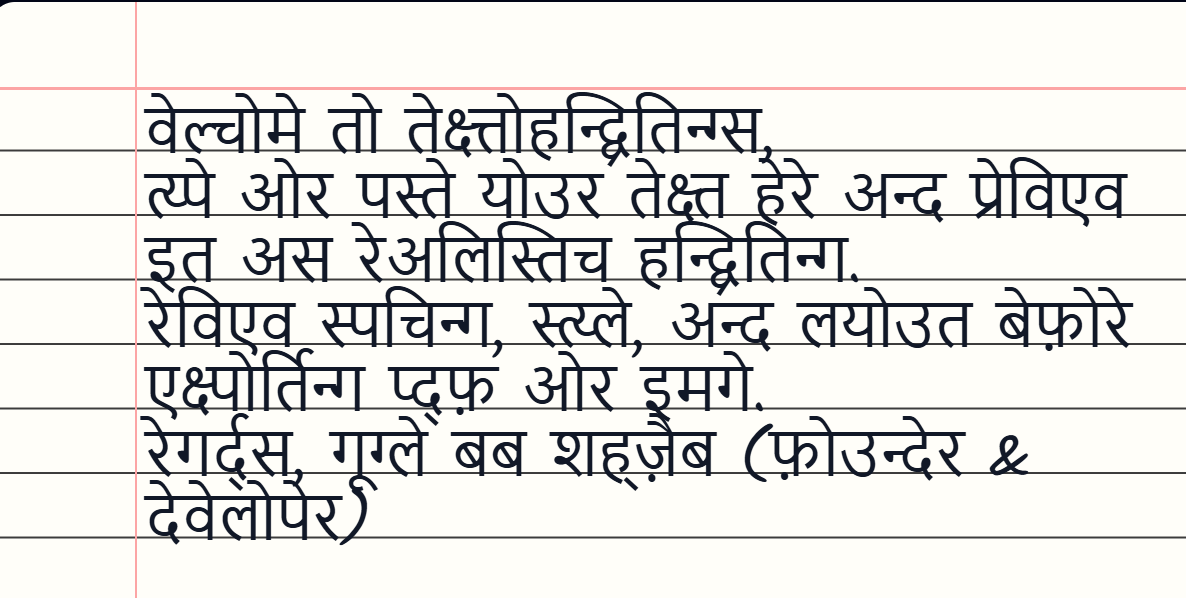 वेल्चोमे तो तेक्ष्त्तोहन्द्वितिन्ग्स,
त्य्पे ओर पस्ते योउर तेक्ष्त हेरे अन्द प्रेविएव
इत अस रेअलिस्तिच हन्द्वितिन्ग.
रेविएव स्पचिन्ग, स्त्य्ले, अन्द लयोउत बेफ़ोरे
एक्ष्पोर्तिन्ग प्द्फ़ ओर इमगे.
रेगर्द्स, गूग्ले बब शह्ज़ैब (फ़ोउन्देर &
देवेलोपेर)